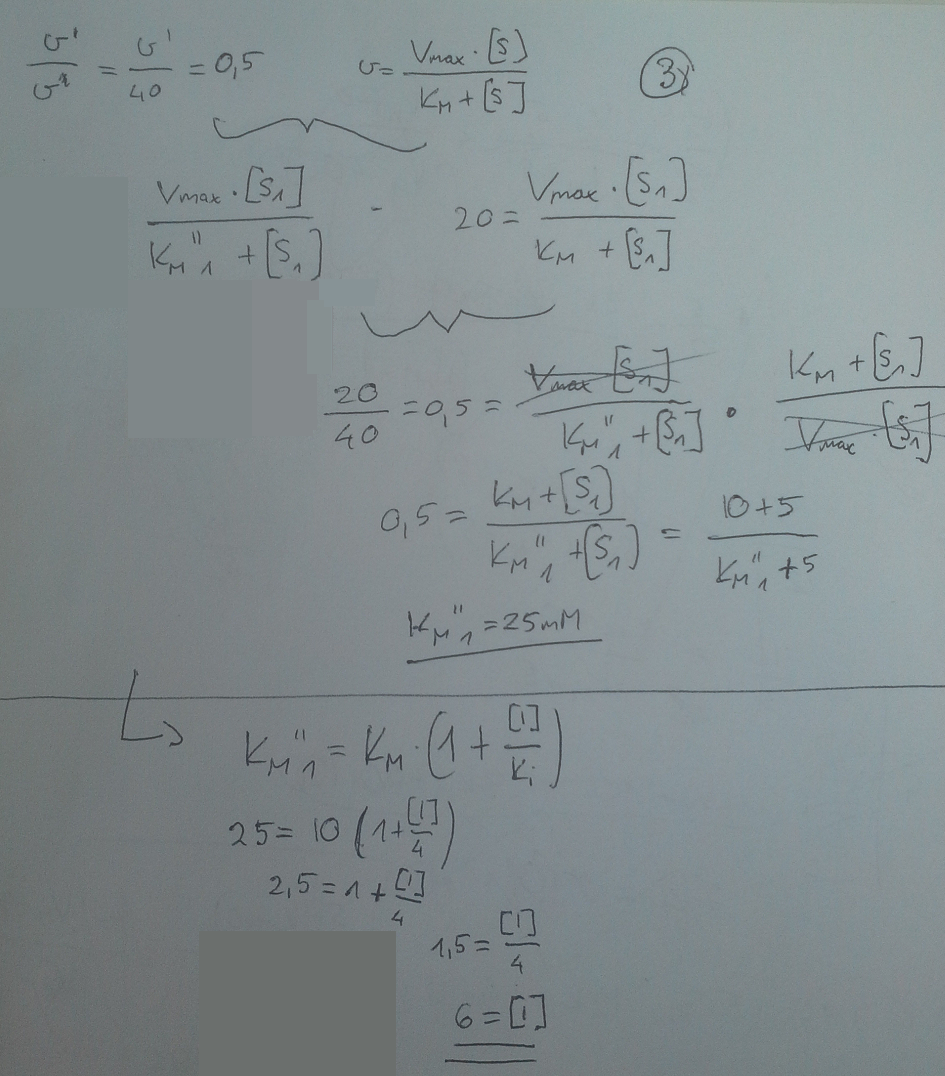 υ'/υ* = υ'/40 = 0,5   υ = Vmax · [S] / KM + [S]   3x
Vmax · [S1] / KM"1 + [S1]   -   20 = Vmax · [S1] / KM + [S1]
20/40 = 0,5 = Vmax [S1] / KM"1 + [S1] · KM + [S1] / Vmax · [S1]
0,5 = KM + [S1] / KM"1 + [S1] = 10+5 / KM"1 + 5
KM"1 = 25mM
KM"1 = KM · (1 + [I]/Ki)
25 = 10 (1 + [I]/4)
2,5 = 1 + [I]/4
1,5 = [I]/4
6 = [I]